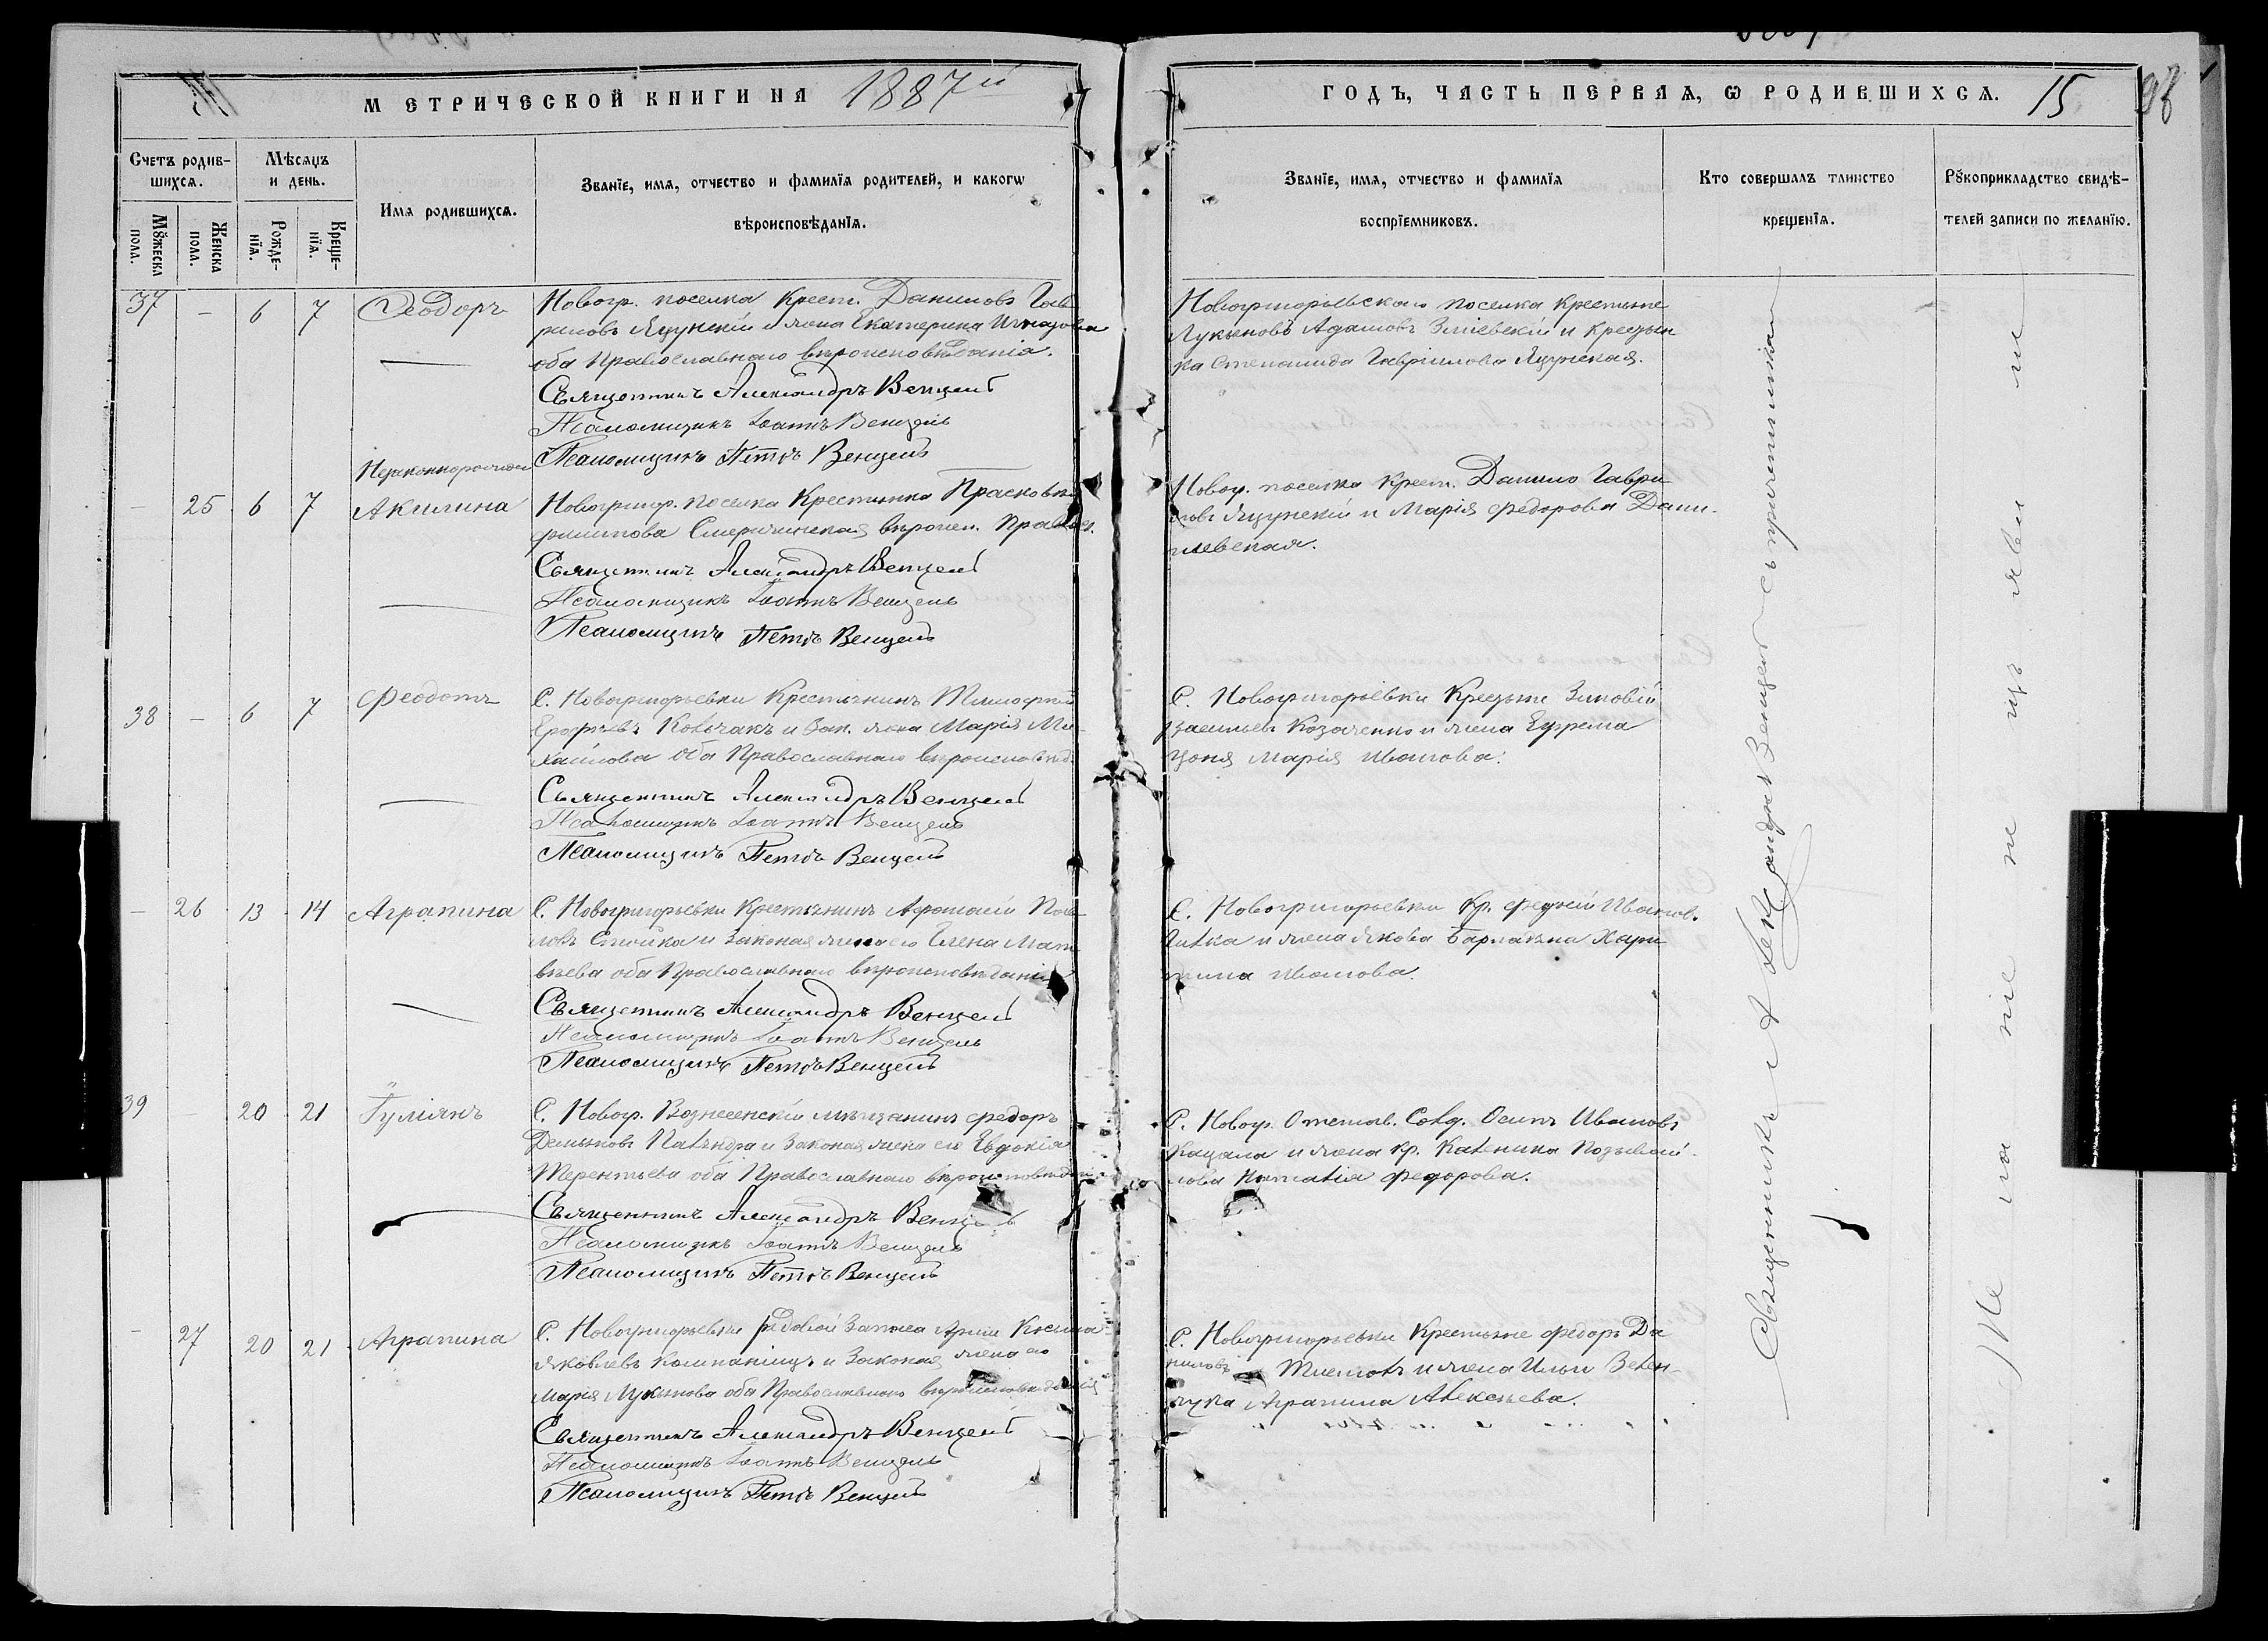 МЕТРИЧЕСКОЙ КНИГИ НА 1887й
ГОДЪ, ЧАСТЬ ПЕРВАЯ, Ѡ РОДИВШИХСЯ. 15
98
Счетъ родив-
шихся.
Мѣсяцъ
и день.
Имя родившихся.
Званїе, имя, отчество и фамилїя родителей, и какогѡ
вѣроисповѣданїя.
Мꙋжеска
пола.
Женска
пола.
Рожде-
нїя.
Креще-
нїя.
Званїе, имя, отчество и фамилїя
воспрїемниковъ.
Кто совершалъ таинство
крещенїя.
Рꙋкоприкладство свидѣ-
телей записи по желанїю.
37 – 6 7 Ѳеодоръ
Новогр. поселка Крест. Даниловъ Гав
риловъ Яцунскій и жена Екатерина
оба Православнаго вѣроисповѣданія.
Священникъ Александръ Венцель
Псаломщикъ Іоаннъ Венцель
Псаломщикъ Петръ Венцель
Новогригорьевскаго поселка крестьяне
Лукьяновъ Адамовъ Зміевскій и крестьян
ка Степанида Гавріилова Яцунская.
Незаконнорожден
– 25 6 7 Акилина
Новогригор. поселка Крестьянка Прасковья
филипова вѣроисп. Правосл.
Священникъ Александръ Венцель
Псаломщикъ Іоаннъ Венцель
Псаломщикъ Петръ Венцель
Новогр. поселка Крест. Данило Гаври
ловъ Яцунскій и Марія федорова Дани-
левская.
38 – 6 7 Феодотъ
С. Новогригорьевки Крестьянинъ Тимофей
Ерофеевъ Ковчакъ и Зак. жена Марія Ми-
хайлова оба Православнаго вѣроисповѣд.
Священникъ Александръ Венцель
Псаломщикъ Іоаннъ Венцель
Псаломщикъ Петръ Венцель
С. Новогригорьевки Крестьяне Зиновій
Васильевъ Козаченко и жена Ефрема
Цоня Марія Иванова.
– 26 13 14 Агрипина
С. Новогригорьевки Крестьянинъ Афанасій Пав
ловъ Стойка и Законая жена его Елена Мат
вѣева оба Православнаго вѣроисповѣданія
Священникъ Александръ Венцель
Псаломщикъ Іоаннъ Венцель
Псаломщикъ Петръ Венцель
С. Новогригорьевки Кр. Иванов.
и жена Якова Хари
тина Иванова.
39 20 21 Іуліянъ
С. Новогр. Вознесенскій мѣщанинъ федоръ
Демьяновъ и Законая жена его Евдокія
Терентьева оба Православнаго вѣроисповѣданія
Священникъ Александръ Венцель
Псаломщикъ Іоаннъ Венцель
Псаломщикъ Петръ Венцель
С. Новогр. Отстав. Солд. Осипъ Ивановъ
Кацала и жена кр. Каленика
федорова.
– 27 20 21 Агрипина
С. Новогригорьевки рядовой Запаса Арміи Косьма
Яковлевъ Компаніецъ и Законая жена его
Марія Лукьянова оба Православнаго вѣроисповѣданія
Священникъ Александръ Венцель
Псаломщикъ Іоаннъ Венцель
Псаломщикъ Петръ Венцель
С. Новогригорьевки Крестьяне федоръ Да
ниловъ и жена Ильи Зелен-
чука Агрипина Алексѣева.
Священникъ Александръ Венцель съ причетниками
Не изъявили